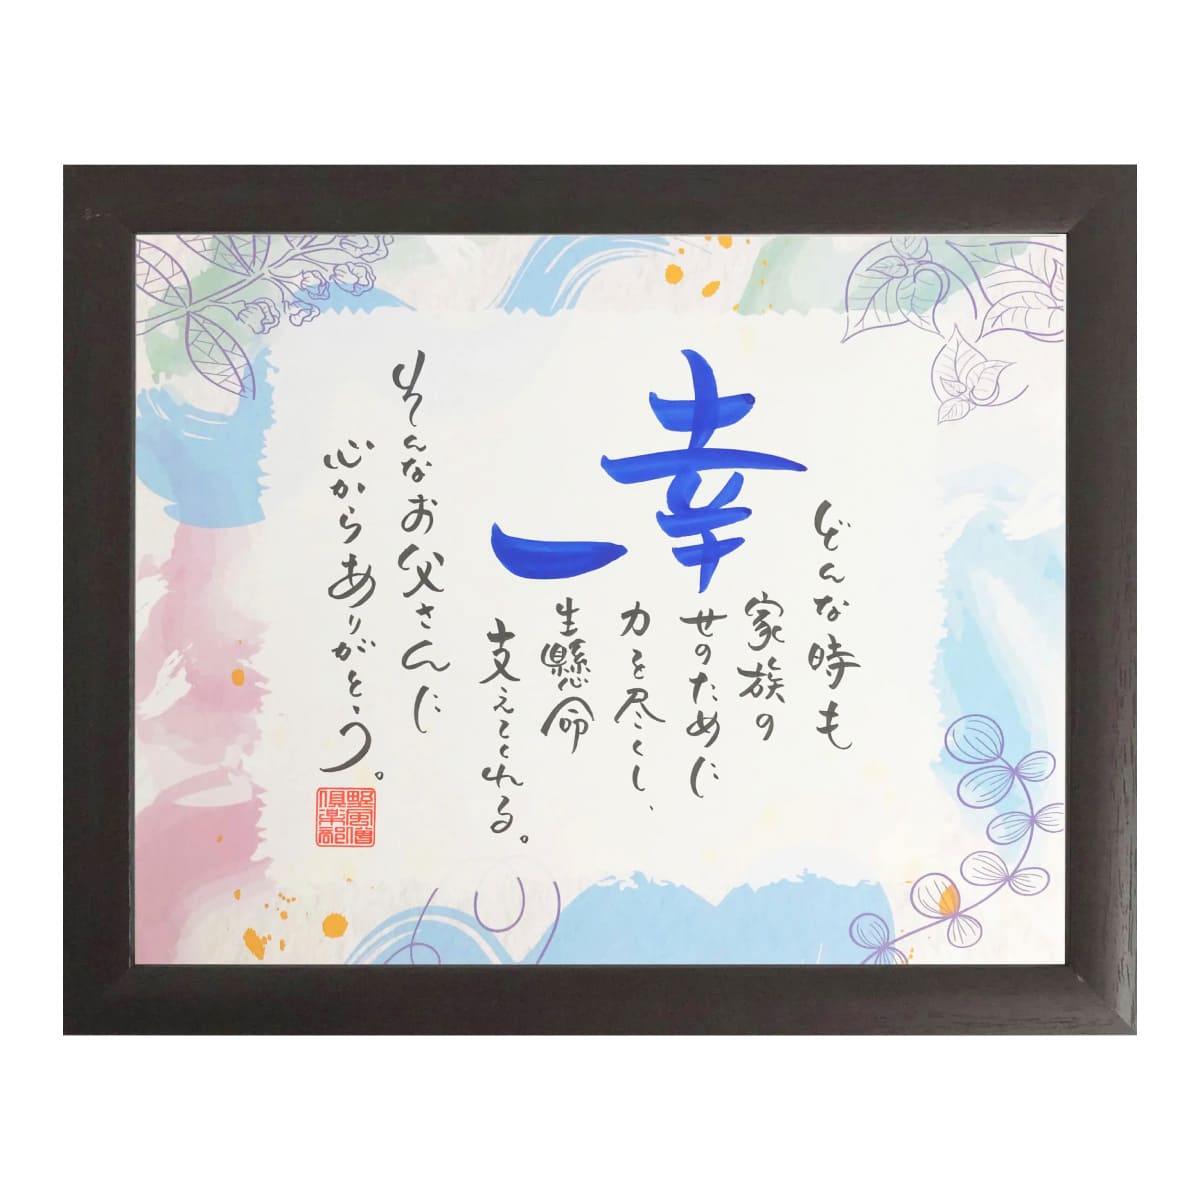 どんな時も
家族の
幸せのために
力を尽くし、
一生懸命
支えてくれる。
そんなお父さんに
心からありがとう。
野風僧
倶楽部